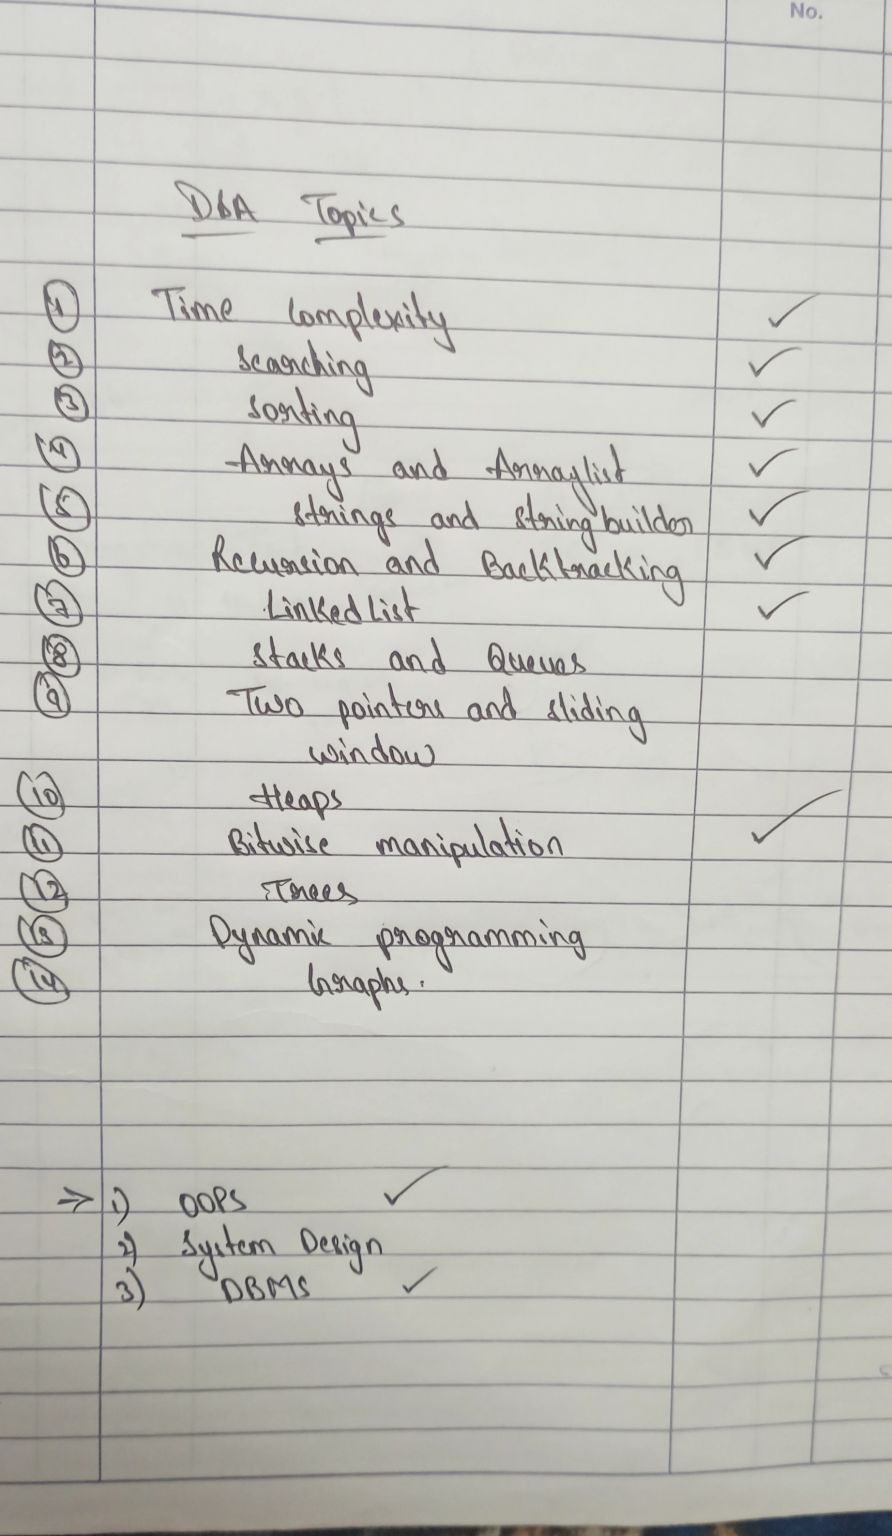 No.
DSA Topics
① Time Complexity ✓
② Searching ✓
③ Sorting ✓
④ Arrays and Arraylist ✓
⑤ Strings and Stringbuilder ✓
⑥ Recursion and Backtracking ✓
⑦ Linked List ✓
⑧ Stacks and Queues
⑨ Two pointers and sliding
window
⑩ Heaps
⑪ Bitwise manipulation ✓
⑫ Trees
⑬ Dynamic programming
⑭ Graphs.
⇒ 1) OOPS ✓
2) System Design
3) DBMS ✓